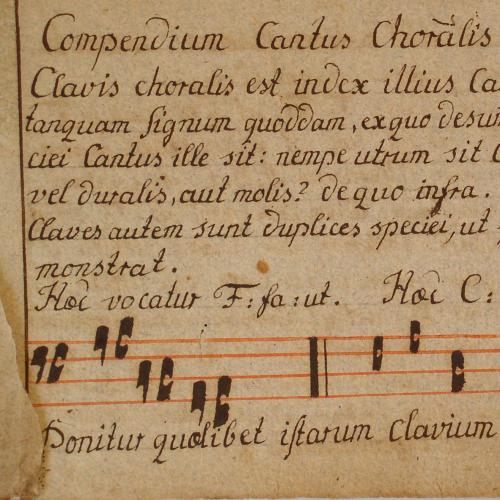 Compendium Cantus Chorālis
Clavis choralis est index illius Ca
tanquam signum quoddam, ex quo desum
ciei Cantus ille sit: nempe utrum sit
vel duralis, aut molis? de quo infra.
Claves autem sunt duplices speciei, ut
monstrat.
Hæc vocatur F: fa: ut. Hæc C:
Ponitur quolibet istarum Clavium